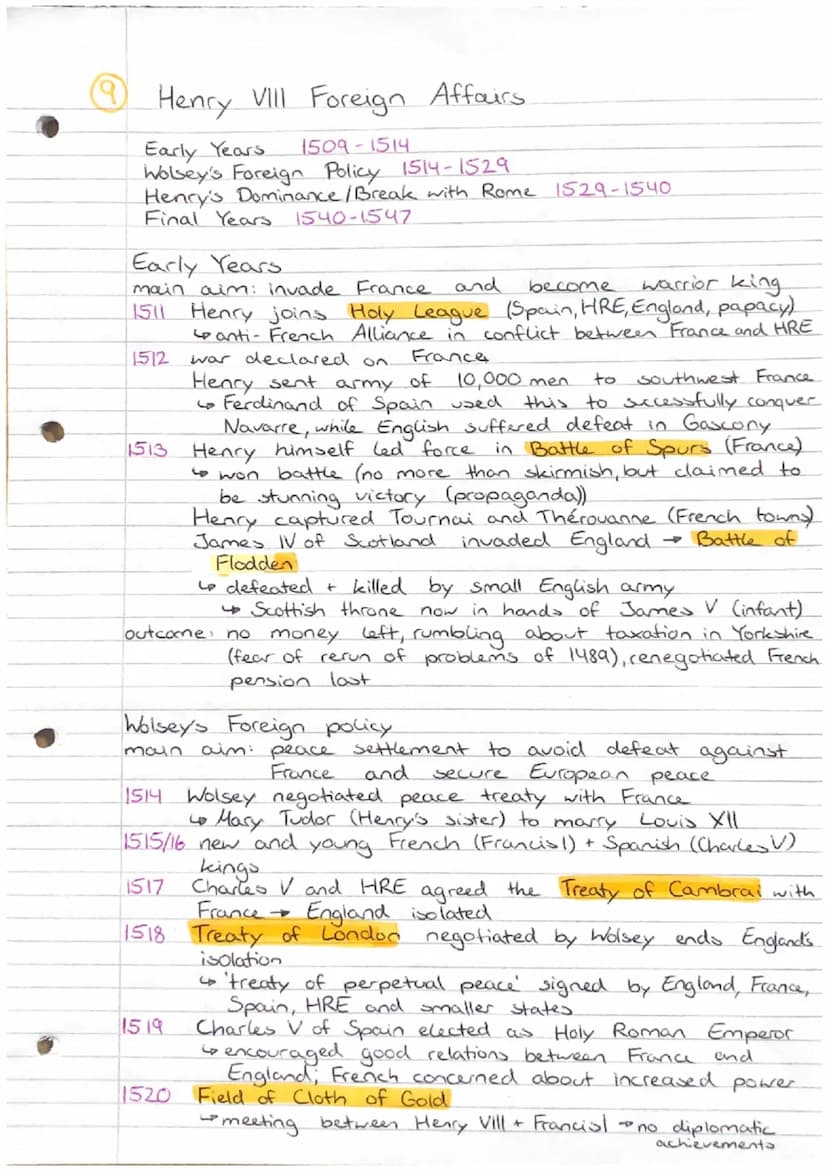 9 Henry VIII Foreign Affairs
Early Years 1509-1514
Wolsey's Foreign Policy 1514-1529
Henry's Dominance/Break with Rome 1529-1540
Final Years 1540-1547
Early Years
main aim: invade France and become warrior king
1511 Henry joins Holy League (Spain, HRE, England, papacy)
↳ anti-French Alliance in conflict between France and HRE
1512 war declared on France
Henry sent army of 10,000 men to southwest France
↳ Ferdinand of Spain used this to sucessfully conquer
Navarre, while English suffered defeat in Gascony
1513 Henry himself led force in Battle of Spurs (France)
↳ won battle (no more than skirmish, but claimed to
be stunning victory (propaganda))
Henry captured Tournai and Thérouanne (French towns)
James IV of Scotland invaded England → Battle of
Flodden
↳ defeated + killed by small English army
↳ Scottish throne now in hands of James V (infant)
outcome: no money left, rumbling about taxation in Yorkshire
(fear of rerun of problems of 1489), renegotiated French
pension lost
Wolsey's Foreign policy
main aim: peace settlement to avoid defeat against
France and secure European peace
1514 Wolsey negotiated peace treaty with France
↳ Mary Tudor (Henry's sister) to marry Louis XII
1515/16 new and young French (Francis I) + Spanish (Charles V)
kings
1517 Charles V and HRE agreed the Treaty of Cambrai with
France → England isolated
1518 Treaty of London negotiated by Wolsey ends England's
isolation
↳ 'treaty of perpetual peace' signed by England, France,
Spain, HRE and smaller states
1519 Charles V of Spain elected as Holy Roman Emperor
↳ encouraged good relations between France and
England; French concerned about increased power
1520 Field of Cloth of Gold
↳ meeting between Henry VIII + Francis I → no diplomatic
achievements